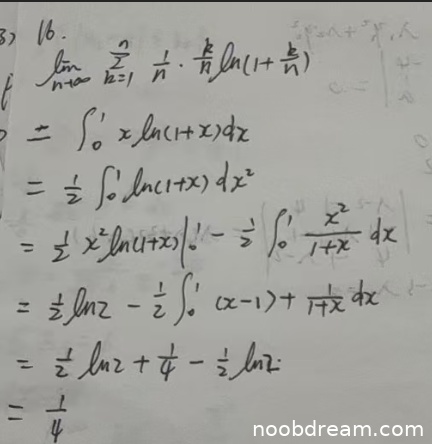 3) 16.
lim n→∞ Σ k=1 n 1/n · k/n ln(1+k/n)
= ∫₀¹ x ln(1+x) dx
= 1/2 ∫₀¹ ln(1+x) dx²
= 1/2 x² ln(1+x) |₀¹ − 1/2 ∫₀¹ x²/(1+x) dx
= 1/2 ln2 − 1/2 ∫₀¹ (x−1) + 1/(1+x) dx
= 1/2 ln2 + 1/4 − 1/2 ln2.
= 1/4
noobdream.com